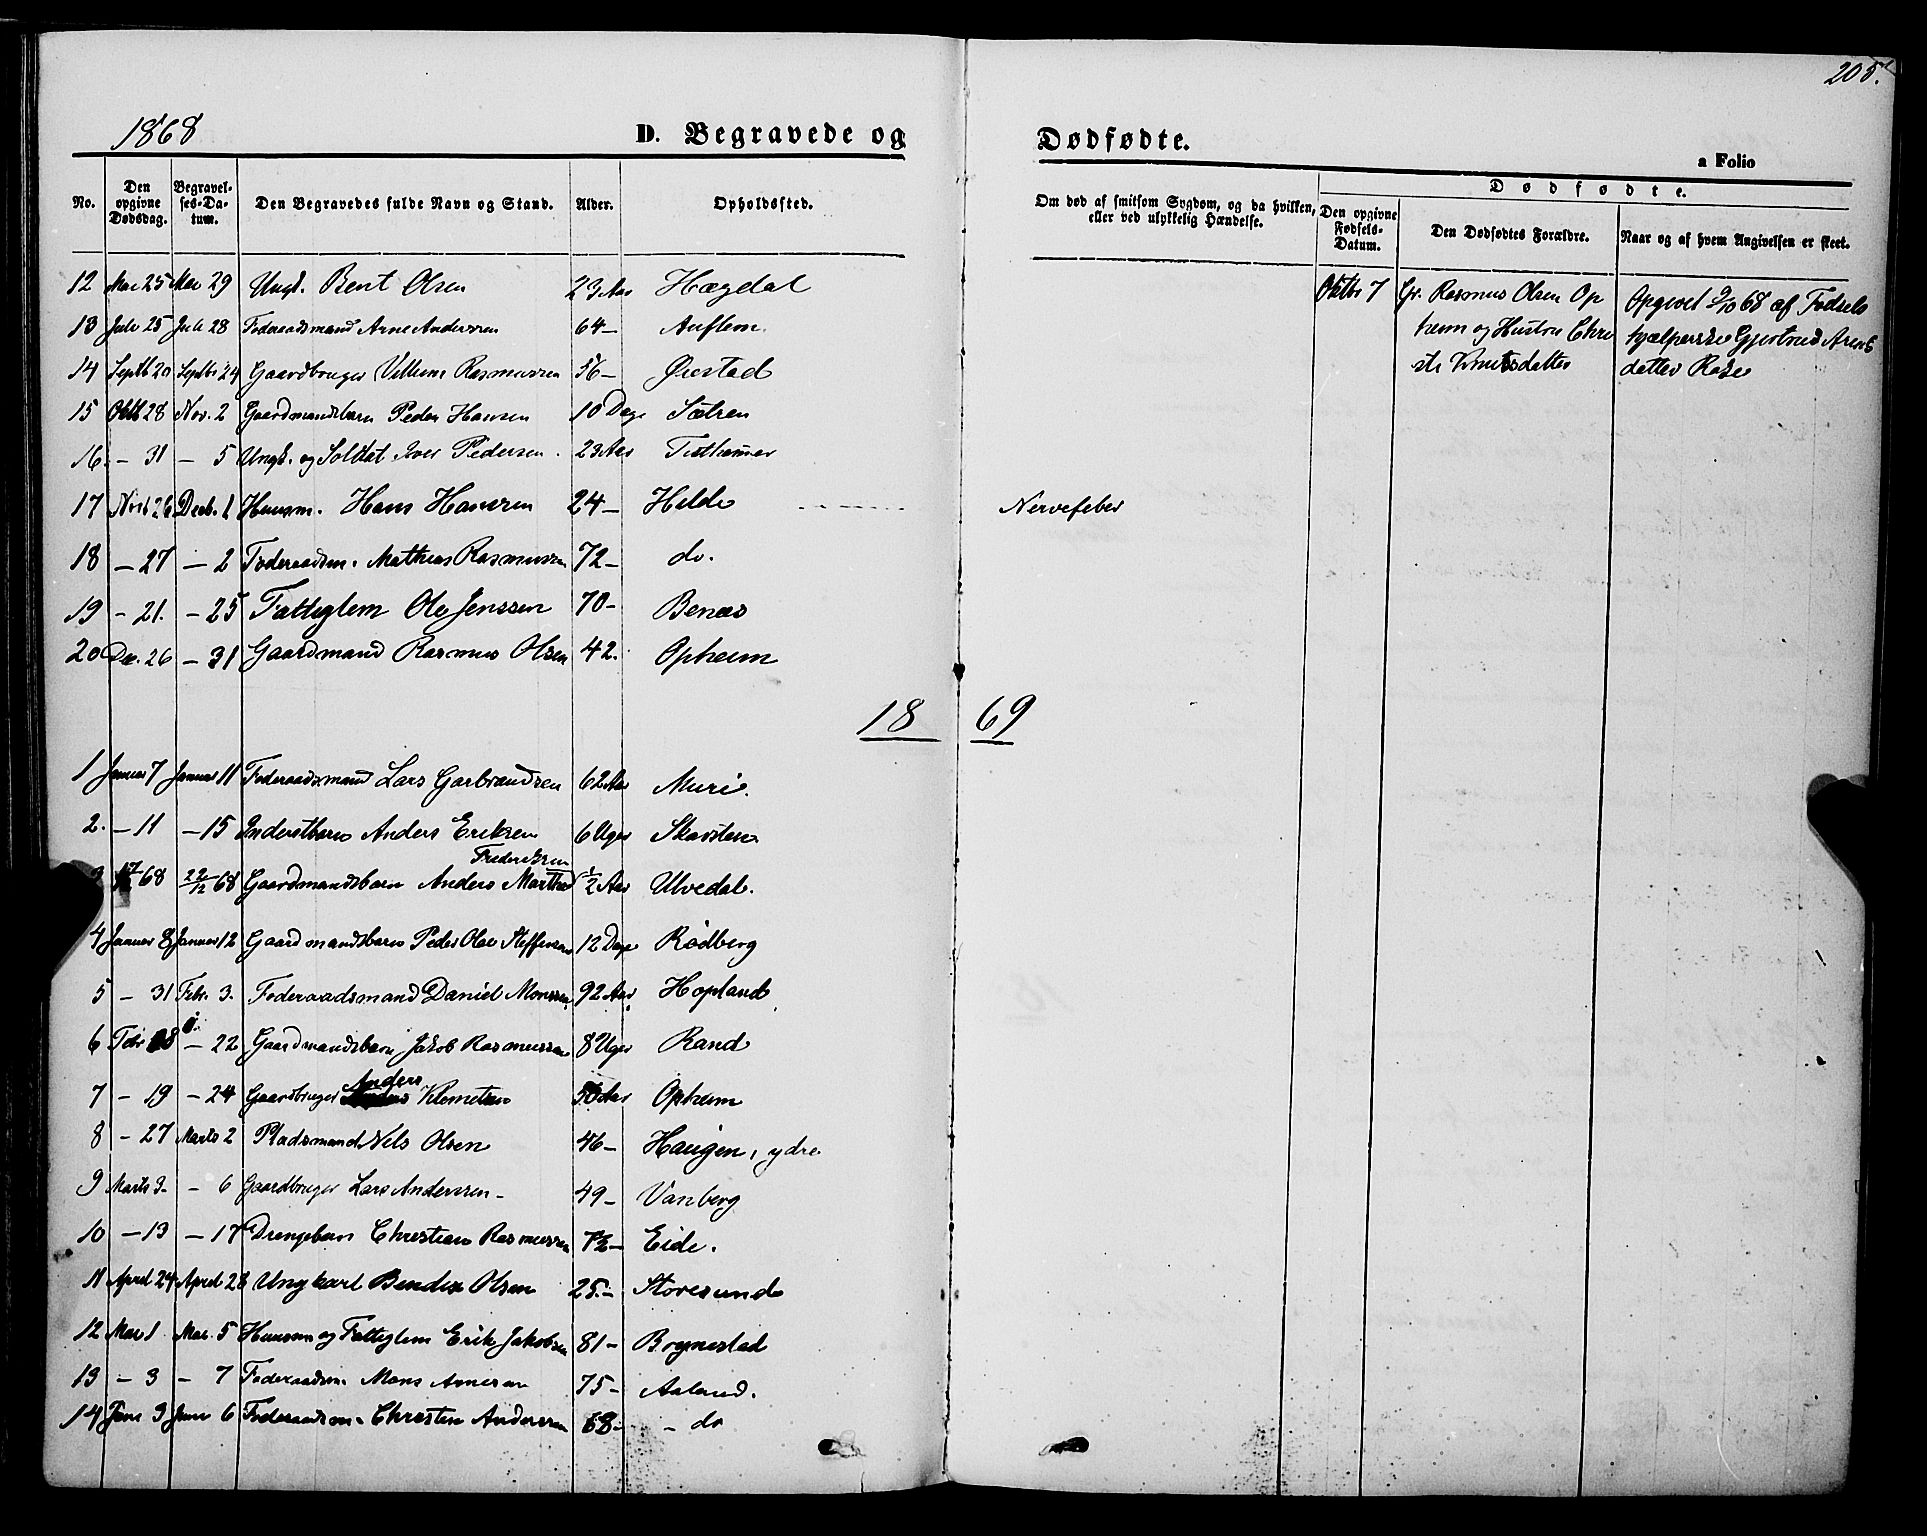 205.
1868
D. Begravede og Dødfødte.
a Folio
No.
Den opgivne Dødsdag.
Begravelses-Datum.
Den Begravedes fulde Navn og Stand.
Alder.
Opholdssted.
Om død af smitsom Sygdom, og da hvilken, eller ved ulykkelig Hændelse.
Dødfødte.
Den opgivne Fødsels-Datum.
Den Dødfødtes Forældre.
Naar og af hvem Angivelsen er skeet.
12 Mai 25 Mai 29 Ungk. Bent Olsen 23 Aar Hægdal
13 Juli 25 Juli 28 Föderaadsmand Arne Anderssen 64 — Auflem
14 Septb 20 Septbr 24 Gaardbruger Villum Rasmussen 56 — Ørestad
15 Oktb 28 Nov. 2 Gaardmandsbarn Peder Hansen 10 Dage Sætren
16. — 31 — 5 Ungk. og Soldat Iver Pedersen 23 Aar Tisthamer
17 Novb 26 Decb. 1 Huusm. Hans Hanssen 24 — Hilde Nervefeber
18 — 27 — 2 Föderaadsm. Mathias Rasmussen 72 — do.
19 — 21. — 25 Fattiglem Ole Jenssen 70 — Benæs
20 De. 26 — 31 Gaardmand Rasmus Olsen 42. Opheim
Oktbr 7 Gr. Rasmus Olsen Op
heim og Hustru Chri
sti Knutsdatter
Opgivet 9/10 68 af Födsels
hjælperske Gjertrud Arents
datter Rake
1869
1 Januar 7 Januar 11 Föderaadsmand Lars Garbrandsen 62 Aar Muri.
2. — 11 — 15 Inderstbarn Anders Eriksen 6 Uger Skarsten
Frederiksen
3 68 22/12 68 Gaardmandsbarn Anders Marthed ½ Aar Ulvedal.
4 Januar 8 Januar 12 Gaardmandsbarn Peder Olai Steffensen 12 Dage Rödberg
5 — 31 Febr. 3. Föderaadsmand Daniel Monssen 92 Aar Hopland
6 Febr 8 — 22 Gaardmandsbarn Jakob Rasmussen 8 Uger Rand
7 — 19 — 24 Gaardbruger Anders Klemetsen Aar Opheim
8 — 27 Marts 2 Pladsmand Nels Olsen 46 — Haugen, ydre
9 Marts 3 — 6 Gaardbruger Lars Anderssen 49 — Vanberg
10 — 13 — 17 Drengebarn Christian Rasmussen 7½ — Eide.
11 April 24 April 28 Ungkarl Bendix Olsen 25. — Storesund
12 Mai 1 Mai. 5 Huusm og Fattiglem Erik Jakobsen 81 — Brynestad
13 — 3 — 7 Föderaadsm. Mons Arnesen 75 — Aaland.
14 Juni 3 Juni 6 Föderaadsm. Christen Anderssen 68 — — do